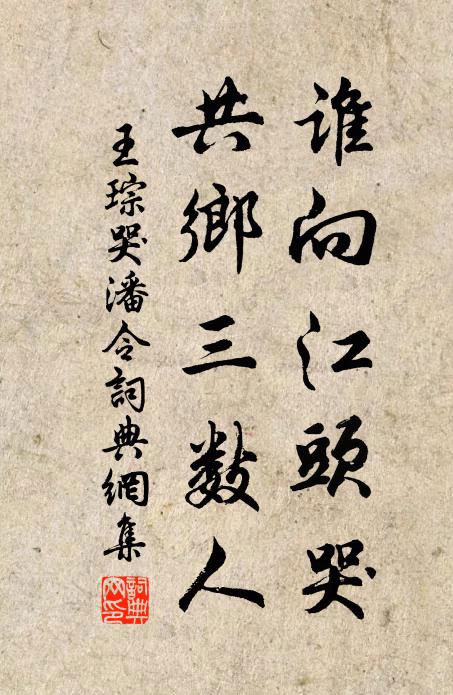 誰向江頭哭
共鄉三數人
王琮哭潘令詞典網集
詞典网印